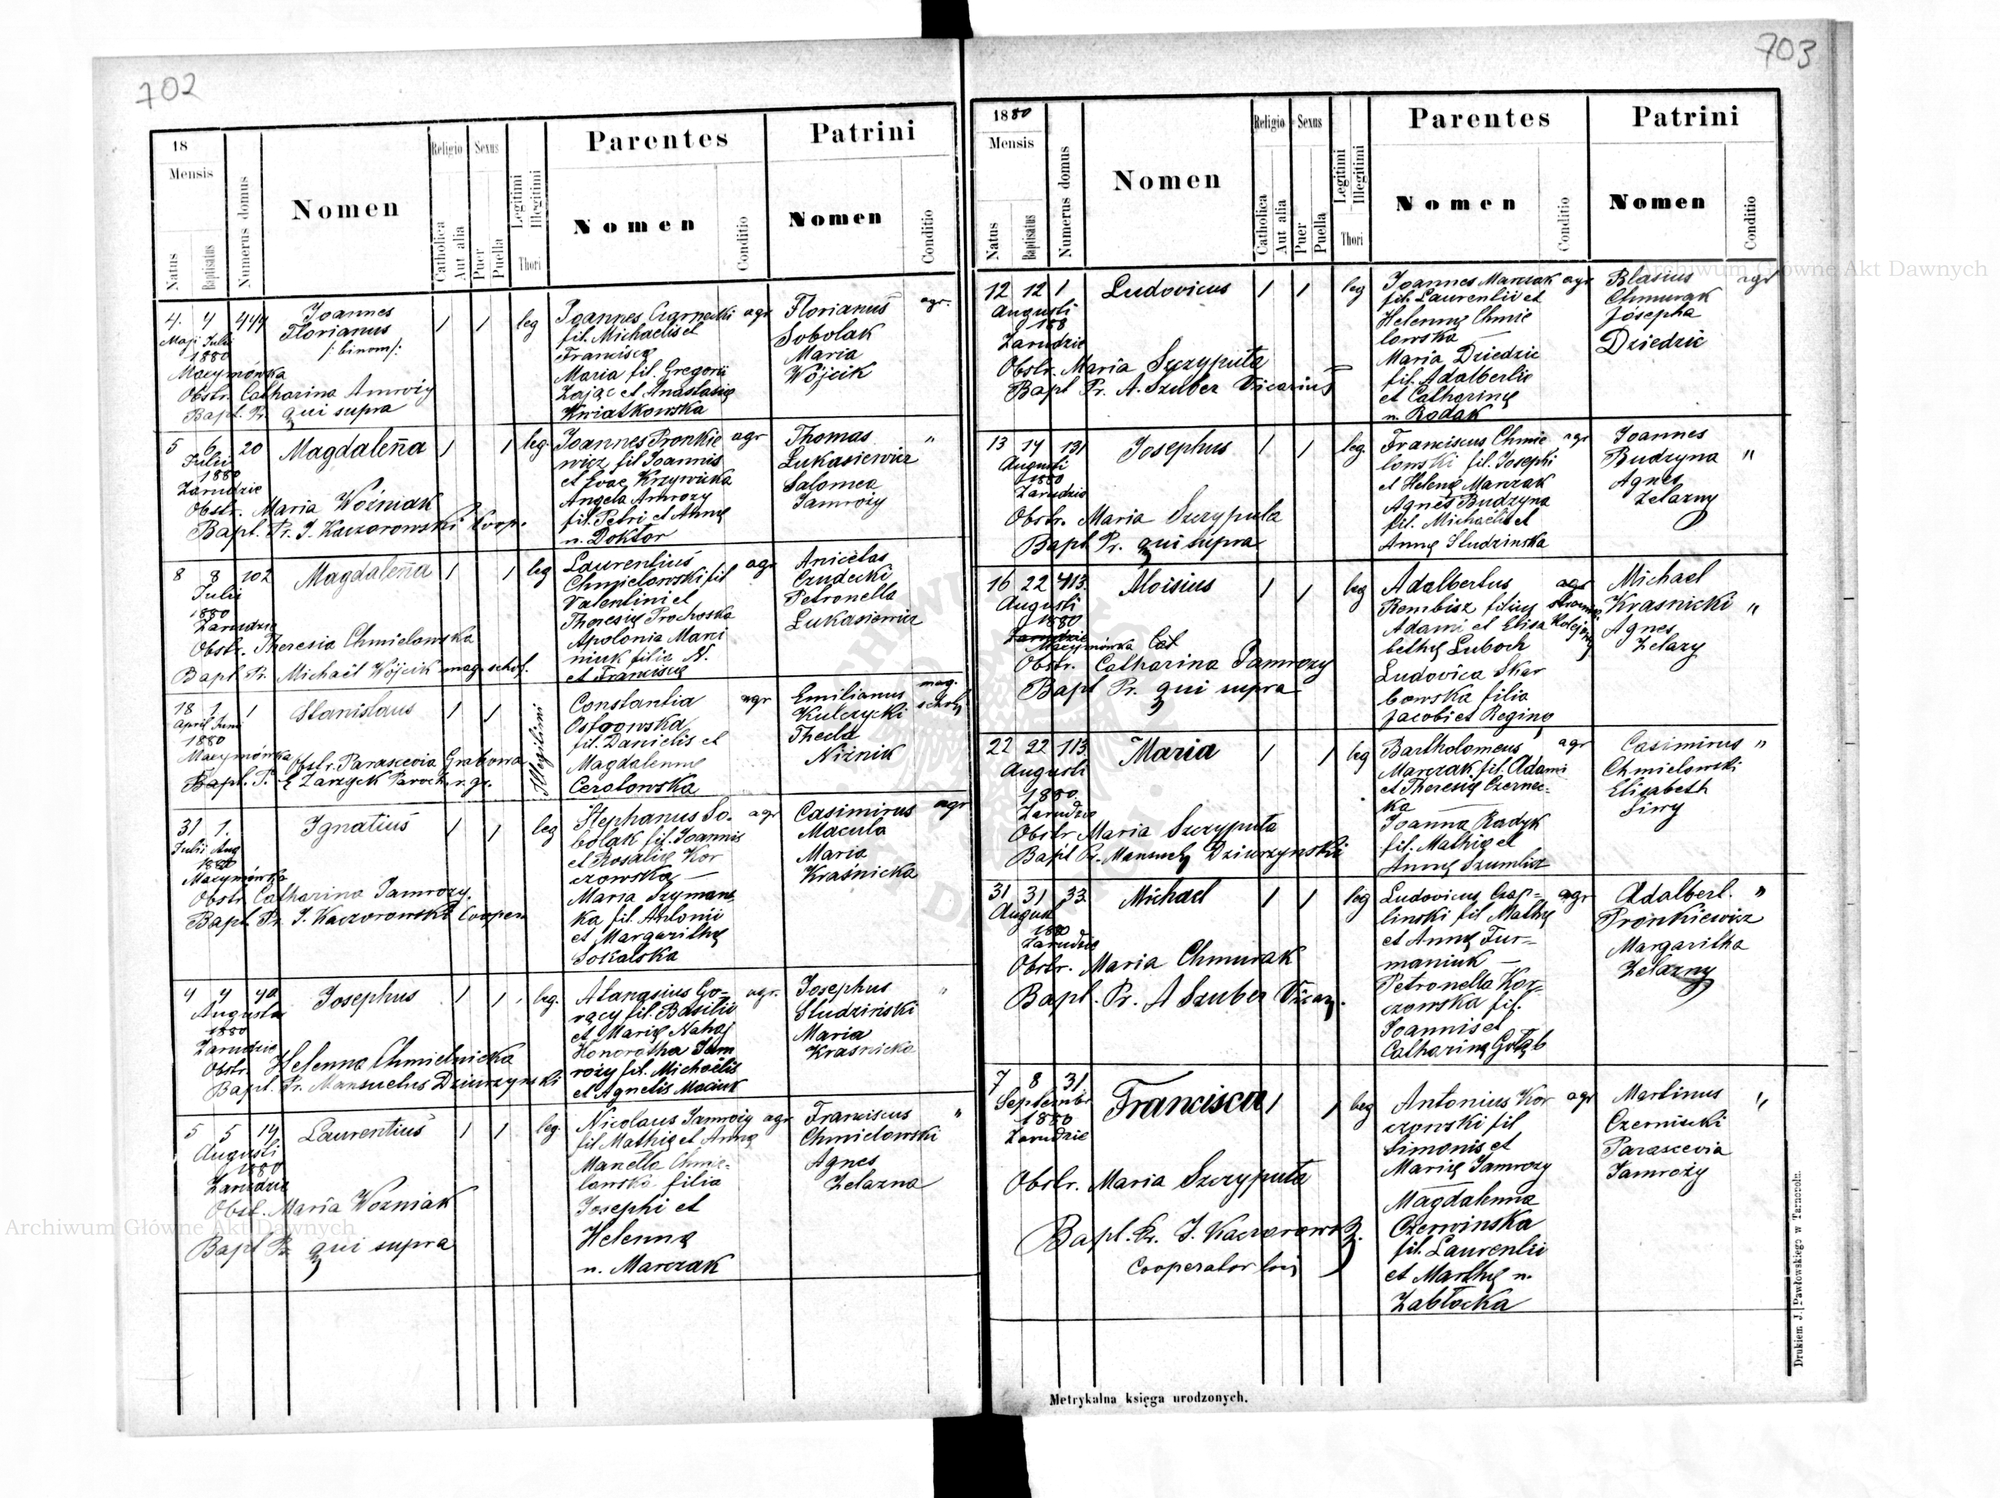 702
18
Mensis
Natus
Baptisatus
Numerus domus
Nomen
Religio
Catholica
Aut alia
Sexus
Puer
Puella
Legitimi
Illegitimi
Thori
Parentes
Nomen
Conditio
Patrini
Nomen
Conditio
4. 4
Maji Julii
1880
Macymówka
Joannes
Florianus
/: binom :/
1 1 leg
Obstr. Catharina Amroży
Bapt. Pr. qui supra
Joannes Czarnecki agr
fil. Michaelis et
Franciscę
Maria fil. Gregorii
Zając et Anastasię
Kwiatkowska
Florianus agr.
Sobolak
Maria
Wójcik
5 6 20
Julii
1880
Zarudzie
Magdalena
1 1 leg.
Obstr. Maria Woźniak
Bapt. Pr. J. Kaczorowski Coop.
Joannes Pronkie agr
wicz fil Joannis
et Evae Krzywicka
Angela Amroży
fil. Petri et Annę
n. Doktor
Thomas "
Łukasiewicz
Salomea
Jamroży
8 8 102
Julii
1880
Zarudzie
Magdalena
1 1 leg
Obstr. Theresia Chmielowska
Bapt Pr. Michael Wójcik mag. schol.
Laurentius agr
Chmielowski fil
Valentini et
Theresię Prochoska
Apolonia Marci
niuk filia N.
et Franciscę
Anicetas
Czudecki
Petronella
Łukasiewicz
18 1 1
April Juni
1880
Macymówka
Stanislaus
1 1 Illegitimi
Obstr. Parascevia Grabowa
Bapt. P. E Zarzycki Paroch. r. gr.
Constantia agr
Ostrowska
fil. Danielis et
Magdalenne
Ceratowska
Emilianus mag.
Kulczycki schol
Thecla
Niżnik
31 1.
Julii Aug
1880
Macymówka
Ignatius
1 1 leg
Obstr Catharina Jamroży.
Bapt. Pr. J. Kaczorowski Cooper
Stephanus So- agr
bolak fil. Joannis
et Rosalię Kor
czowska —
Maria Szymans
ka fil. Antonii
et Margarithę
Sokalska
Casimirus agr
Macula
Maria
Krasnicka
4 4 40
Augusti
1880
Zarudzie
Josephus
1 1 leg.
Obstr. Helenna Chmielnicka
Bapt. Pr. Mansuetus Dziurzynski
Atanasius Go- agr.
rący fil. Basilii
et Marię Nahaj
Honoratha Jam
roży fil. Michaelis
et Agnetis Maciuk
Josephus "
Studziński
Maria
Krasnicka
5 5 14
Augusti
1880
Zarudzie
Laurentius
1 1 leg.
Obst. Maria Woźniak
Bapt Pr. qui supra
Nicolaus Jamroży agr
fil. Mathię et Annę
Manella Chmie-
lowska filia
Josephi et
Helennę
n. Marczak
Franciscus "
Chmielowski
Agnes
Żelazna
703
1880
Mensis
Natus
Baptisatus
Numerus domus
Nomen
Religio
Catholica
Aut alia
Sexus
Puer
Puella
Legitimi
Illegitimi
Thori
Parentes
Nomen
Conditio
Patrini
Nomen
Conditio
12 12 1
Augusti
188
Zarudzie
Ludovicus
1 1 leg
Obstr. Maria Szczyputa
Bapt Pr. A. Szuber Vicarius
Joannes Marczak agr
fil. Laurentii et
Helennę Chmie
lowska —
Maria Dziedzic
fil. Adalberti
et Catharinę
n. Rodak
Blasius agr
Chmurak
Josepha
Dziedzic
13 14 131
Augusti
1880
Zarudzie
Josephus
1 1 leg.
Obstr. Maria Szczyputa
Bapt Pr. qui supra
Franciscus Chmie agr
lowski fil. Josephi
et Helenę Marczak
Agnes Budzyna
fil. Michaelis et
Annę Studzinska
Joannes
Budzyna "
Agnes
Żelazny
16 22 413.
Augusti
1880
Zarudzie
Macymówka
Aloisius
1 1 leg
Cat
Obstr. Catharina Jamroży
Bapt Pr. qui supra
Adalbertus agr
Rembisz filius
Adami et Elisa
bethę Luboch
Ludovica Skar
bowska filia
Jacobi et Reginę
Michael
Krasnicki "
Agnes
Żelazy
22 22 113.
Augusti
1880
Zarudzie
Maria
1 1 leg
Obstr Maria Szczyputa
Bapt Pr. Mansuetus Dziurzynski
Bartholomeus agr
Marczak fil. Adami
et Theresię Czernec-
ka —
Joanna Radyk
fil. Mathię et
Annę Szumlist
Casimirus "
Chmielowski
Elisabeth
Siwy
31 31 33.
August
1880
Zarudzie
Michael
1 1 leg
Obstr. Maria Chmurak
Bapt. Pr. A Szuber Vicar.
Ludovicus Czap- agr
linski fil Mathię
et Annę Fur-
maniuk —
Petronella Kor-
czowska fil.
Joannis et
Catharinę Gołąb
Adalbert. "
Pronkiewicz
Margaritha
Żelazny
7 8 31
Septembr
1880
Zarudzie
Francisca
1 1 leg
Obstr. Maria Szczyputa
Bapt. Pr. J. Kaczorowski
Cooperator loci
Antonius Kor agr
czowski fil
Simonis et
Marię Jamroży
Magdalenna
Czerwinska
fil. Laurentii
et Marthę n.
Zabłocka
Martinus "
Czerniecki
Parascevia
Jamroży
Metrykalna księga urodzonych.
Drukiem J. Pawłowskiego w Tarnopolu.
Archiwum Główne Akt Dawnych
Archiwum Główne Akt Dawnych